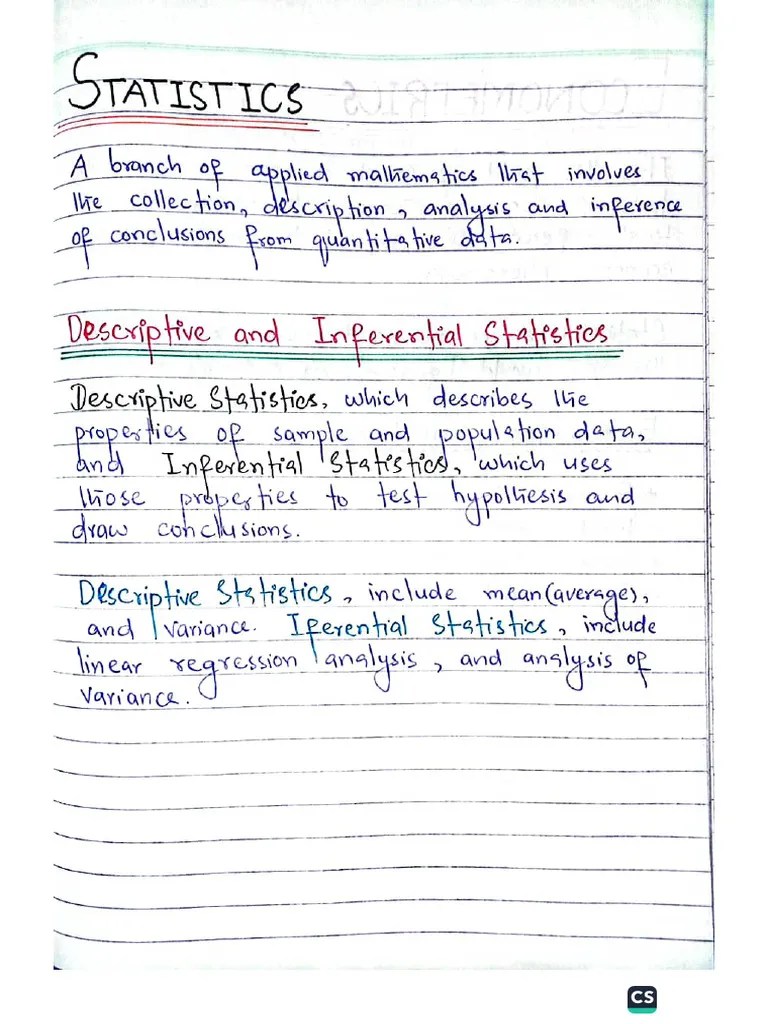 STATISTICS
A branch of applied mathematics that involves
the collection, description, analysis and inference
of conclusions from quantitative data.
Descriptive and Inferential Statistics
Descriptive Statistics, which describes the
properties of sample and population data,
and Inferential Statistics, which uses
those properties to test hypothesis and
draw conclusions.
Descriptive Statistics, include mean (average),
and variance. Iferential Statistics, include
linear regression analysis, and analysis of
variance.
CS